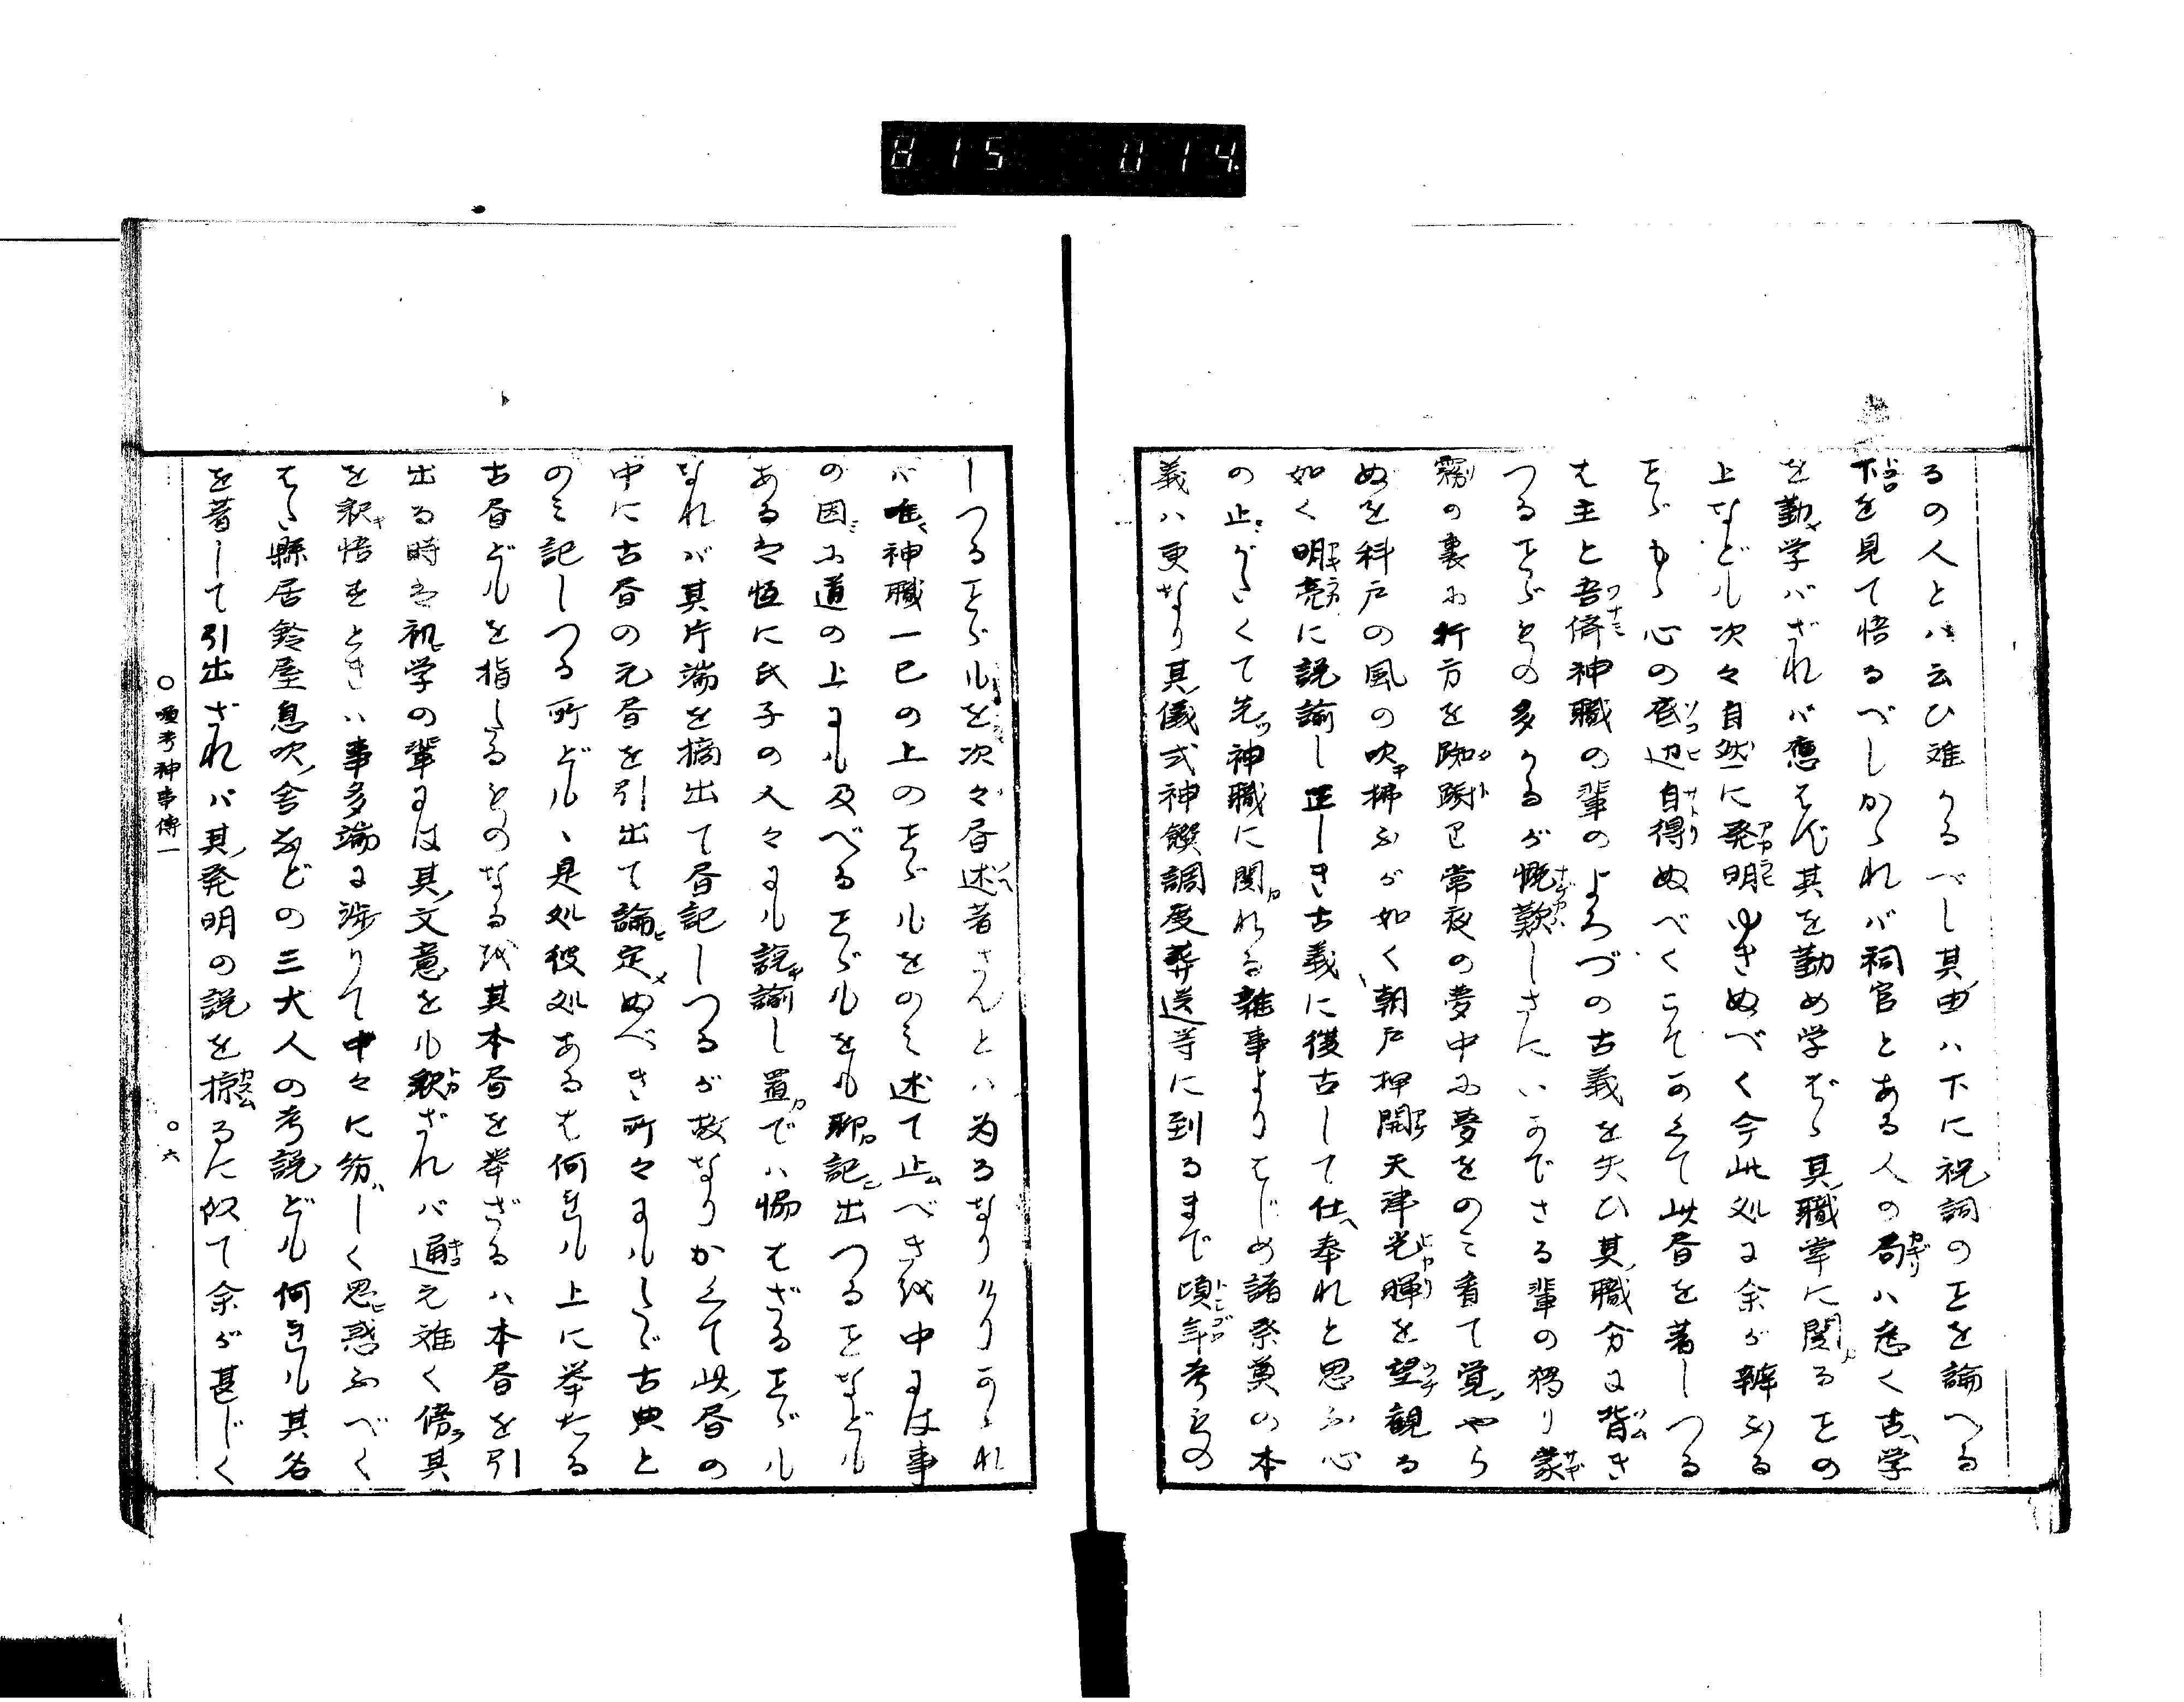 815 014
るの人とハ云ひ難かるべし其由ハ下に祝詞の𪜈を論へる
下を見て悟るべしかゝれバ祠官とある人の局ハ悉く古学
を勤学バざれバ應はず其を勤め学ばゝ其職掌に関る𪜈の
上なども次々自然に発明ゆきぬべく今此処に余が辨ふる
𪜈ゞもゝ心の底辺自得ぬべくこそかくて此書を著しつる
は主と吾儕神職の輩のよろづの古義を失ひ其職分に背き
つる𪜈ゞもの多かるが慨歎しさにいかでさる輩の獨り蒙
霧の裏に行方を踟蹰巳常夜の夢中に夢をのミ看て覚やら
ぬを科戸の風の吹掃ふが如く朝戸押開天津光暉を望観る
如く明亮に説諭し正しき古義に復古して仕奉れと思ふ心
の止がたくて先神職に関れる雑事よりはじめ諸祭奠の本
義ハ更なり其儀式神饌調度葬送等に到るまで頃年考もの
しつる𪜈ゞもを次々書述著さんとハ為るなりけりかゝれ
バ唯神職一己の上の𪜈ゞもをのミ述て止べきを中には事
の因に道の上にも及べる𪜈ゞもをも聊記出つる𪜈なども
あるは恆に氏子の人々にも説諭し置でハ協はざる𪜈ゞも
なれバ其片端を摘出て書記しつるが故なりかくて此書の
中に古書の元書を引出て論定ぬべき所々にもたゞ古典と
のミ記しつる所ども是処彼処あるは何れも上に挙たる
古書どもを指たるものなるを其本書を挙ざるハ本書を引
出る時は初学の輩には其文意をも釈ざれバ通え難く傍其
を釈悟すときハ事多端に渉りて中々に紛しく思惑ふべく
はた縣居鈴屋息吹舎などの三大人の考説ども何れも其名
を著して引出ざれバ其発明の説を掠るに似て余が甚じく
○頭考神事傳一 ○六